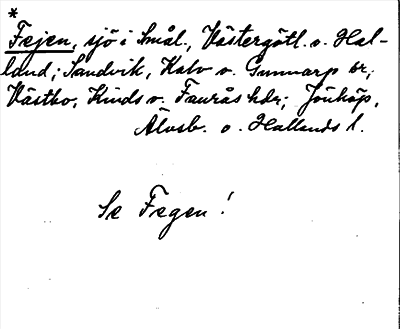 *
Fejen, sjö i Smål., Västergötl. o. Hal-
land; Sandvik, Kalv o. Gunnarp sr;
Västbo, Kinds o. Faurås hdr; Jönköp,
Älvsb. o. Hallands l.
Se Fegen!